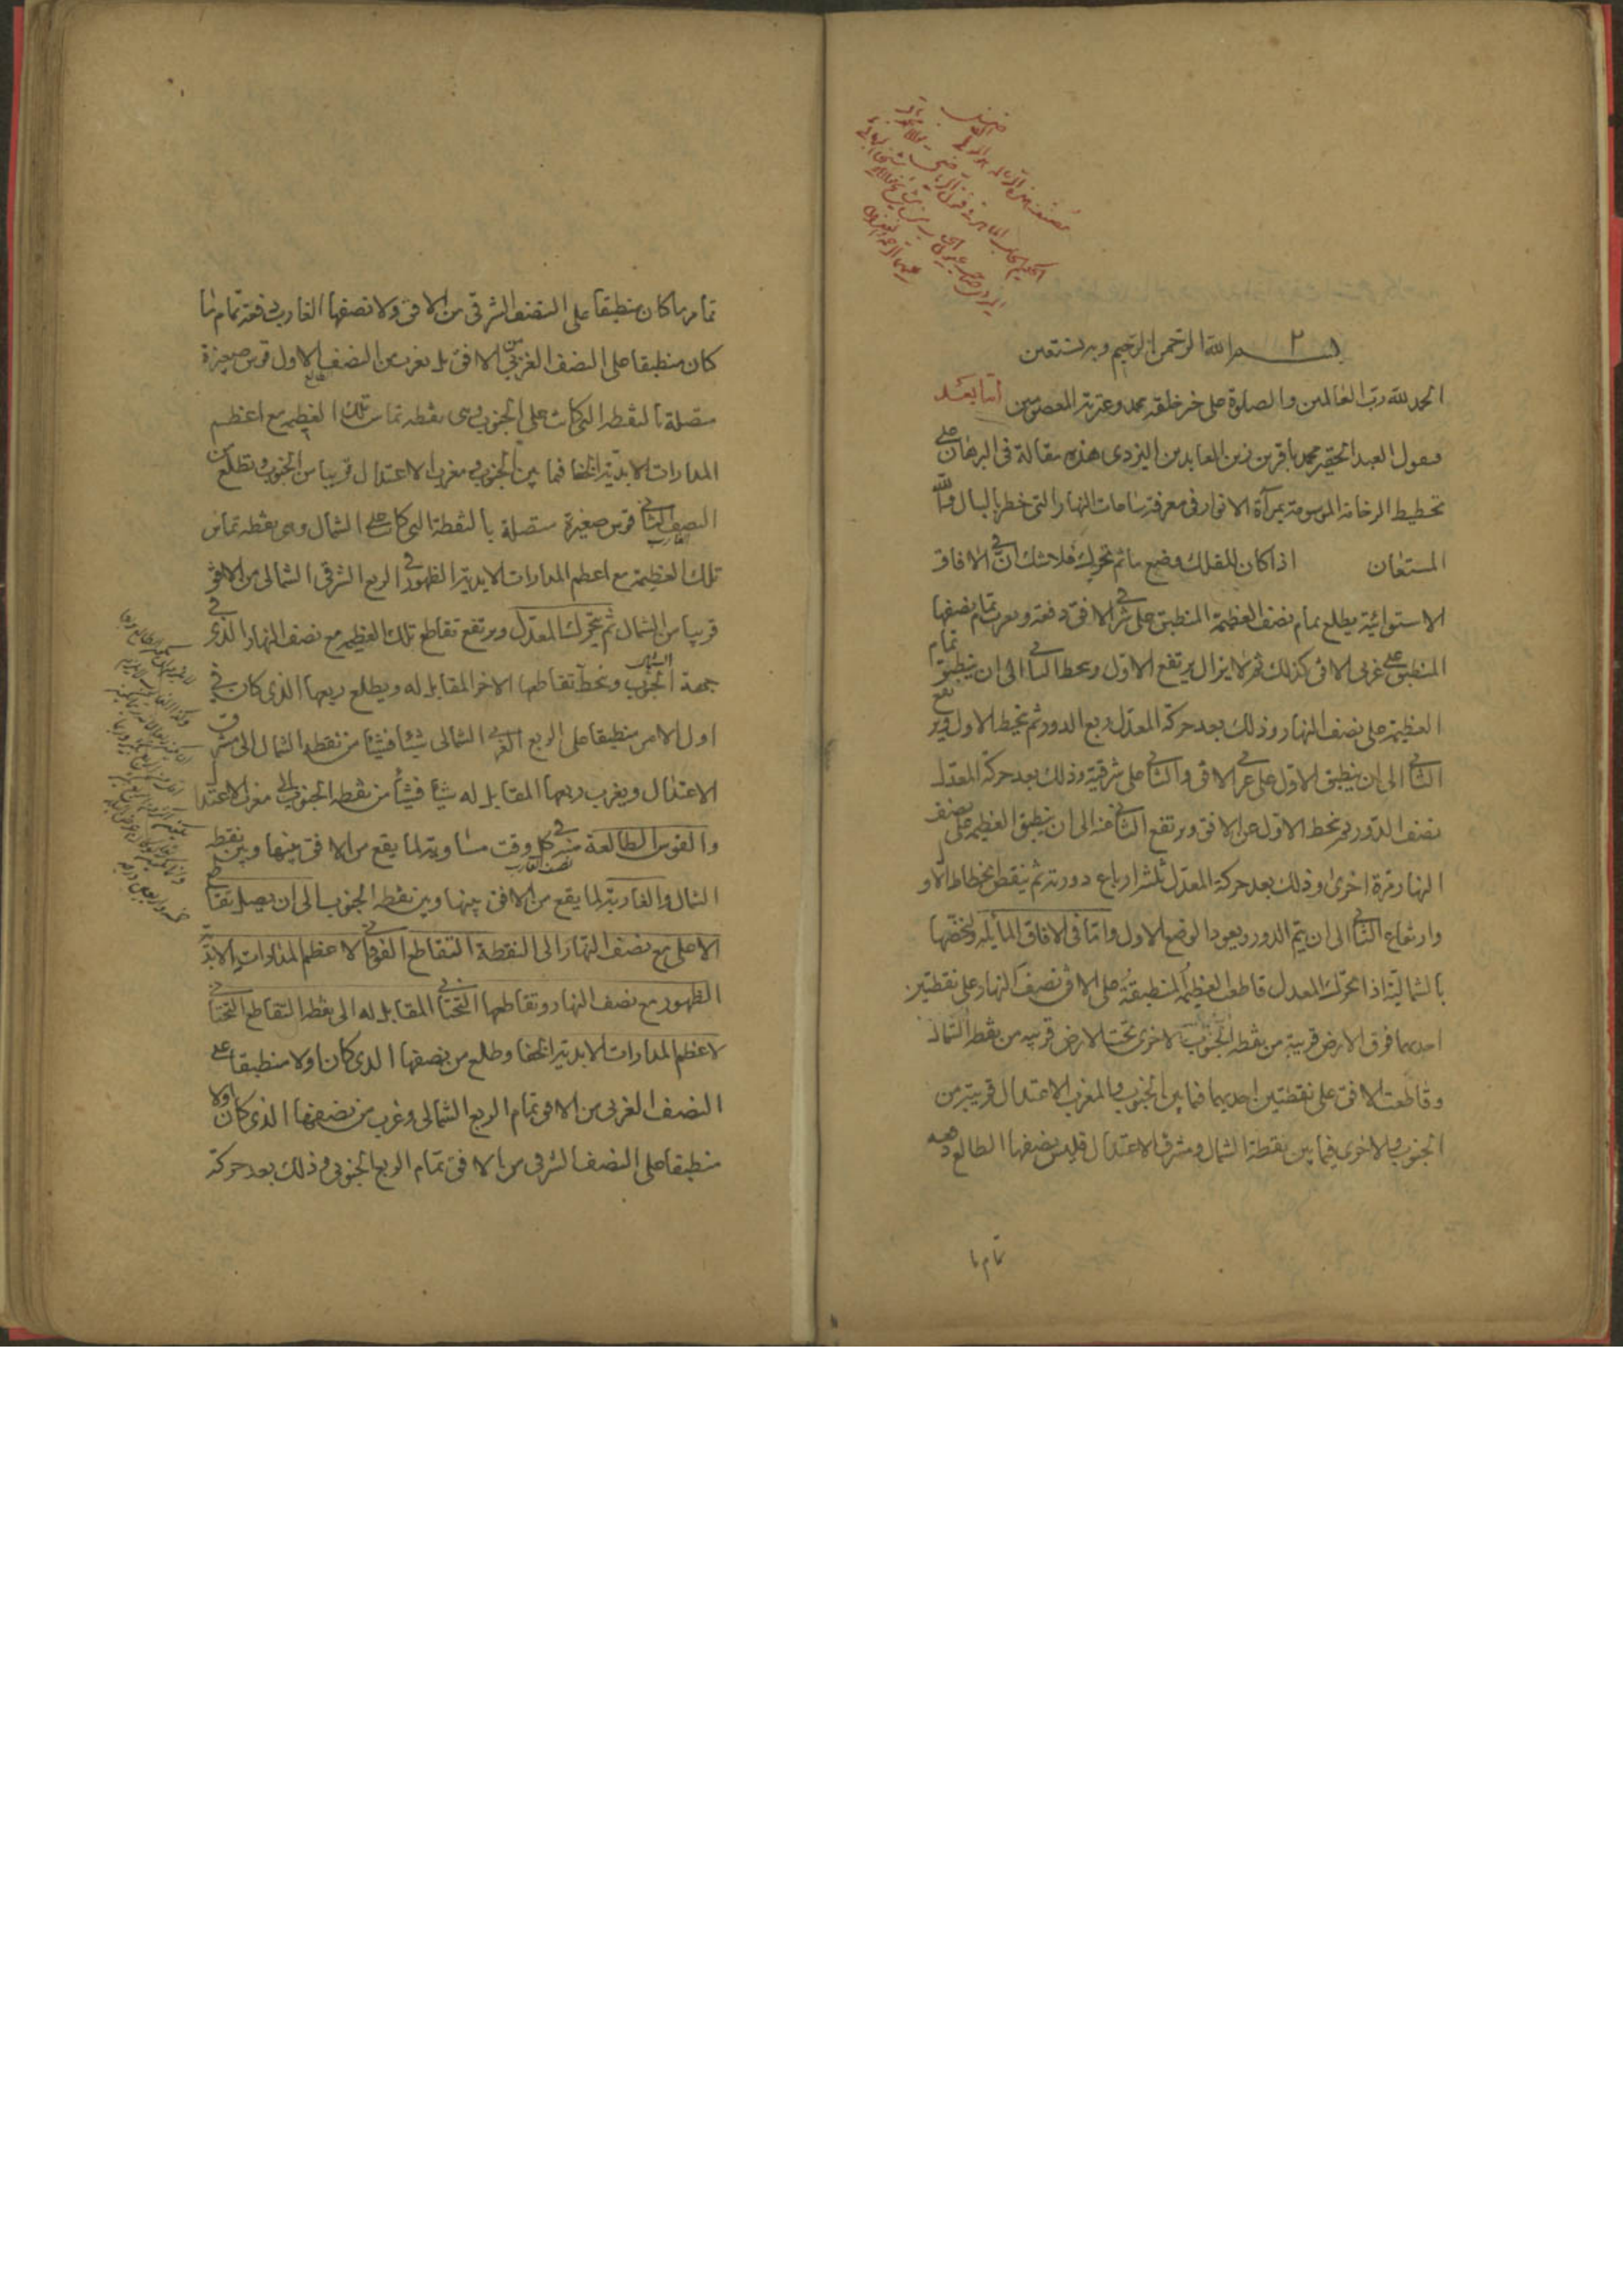 بسم الله الرحمن الرحيم وبه نستعين
الحمد لله رب العالمين والصلوة على خير خلقه محمد وعترته المعصومين اما بعد
فيقول العبد الحقير محمد باقر بن زين العابدين اليزدى هذه مقالة فى البرهان على
تخطيط الرخامة الموسومة بمرآة الانوار فى معرفة ساعات النهار التى خطر بالبال والله
المستعان اذا كان للفلك وضع ما ثم تحرك فلا شك ان فى الافاق
الاستوائية يطلع تمام نصف العظيمة المنطبق على شرقى الافق دفعة ويغرب تمام نصفها
المنطبق على غربى الافق كذلك ثم لا يزال يرتفع الاول وينحط الثانى الى ان ينطبق تمام
العظيمة على نصف النهار وذلك بعد حركة المعدل ربع الدور ثم ينحط الاول ويرتفع
الثانى الى ان ينطبق الاول على غربى الافق والثانى على شرقية وذلك بعد حركة المعدل
نصف الدور ثم ينحط الاول عن الافق ويرتفع الثانى عنه الى ان ينطبق العظيمة على نصف
النهار مرة اخرى وذلك بعد حركة المعدل ثلثة ارباع دورته ثم ينقص انحطاط الاول
وارتفاع الثانى الى ان يتم الدور ويعود الوضع الاول واما فى الافاق المائلة ولنخصها
بالشمالية اذا تحرك المعدل قاطعت العظيمة المنطبقة على الافق نصف النهار على نقطتين
احديهما فوق الارض قريبة من نقطة الجنوب والاخرى تحت الارض قريبه من نقطة الشمال
وقاطعت الافق على نقطتين احديهما فيما بين الجنوب والمغرب الاعتدال قريبة من
الجنوب والاخرى فيما بين نقطة الشمال ومشرق الاعتدال فليس نصفها الطالع دفعه
تمام ما
تمام ما كان منطبقا على النصف الشرقى من الافق ولا نصفها الغارب دفعة تمام ما
كان منطبقا على النصف الغربى من الافق بل يغرب من النصف الاول قوس صغيرة
متصلة بالنقطه التى كانت على الجنوب وهى نقطه تماس تلك العظيمه مع اعظم
المدارات الابدية الخفا فيما بين الجنوب ومغرب الاعتدال قريبا من الجنوب ويطلع من
النصف الثانى قوس صغيرة متصلة بالنقطة التى كانت على الشمال وهى نقطه تماس
تلك العظيمة مع اعظم المدارات الابدية الظهور فى الربع الشرقى الشمالى من الافق
قريبا من الشمال ثم يتحرك المعدل ويرتفع تقاطع تلك العظيمه مع نصف النهار الذى فى
جهة الجنوب وينحط تقاطعها الاخر المقابل له ويطلع ربعها الذى كان فى
اول الامر منطبقا على الربع الغربى الشمالى شيئا فشيئا من نقطة الشمال الى مشرق
الاعتدال ويغرب ربعها المقابل له شيئا فشيئا من نقطه الجنوب الى مغرب الاعتدال
والقوس الطالعة منه فى كل وقت مساوية لما يقع من الافق بينها وبين نقطه
الشمال والغاربة لما يقع من الافق بينها وبين نقطه الجنوب الى ان يصل تقاطع
الاعلى مع نصف النهار الى النقطة التقاطع الفوقانى لاعظم المدارات الابدية
الظهور مع نصف النهار وتقاطعها التحتانى المقابل له الى نقطه التقاطع التحتانى
لاعظم المدارات الابدية الخفا وطلع من نصفها الذى كان اولا منطبقا على
النصف الغربى من الافق تمام الربع الشمالى وغرب من نصفها الذى كان اولا
منطبقا على النصف الشرقى من الافق تمام الربع الجنوبى وذلك بعد حركة